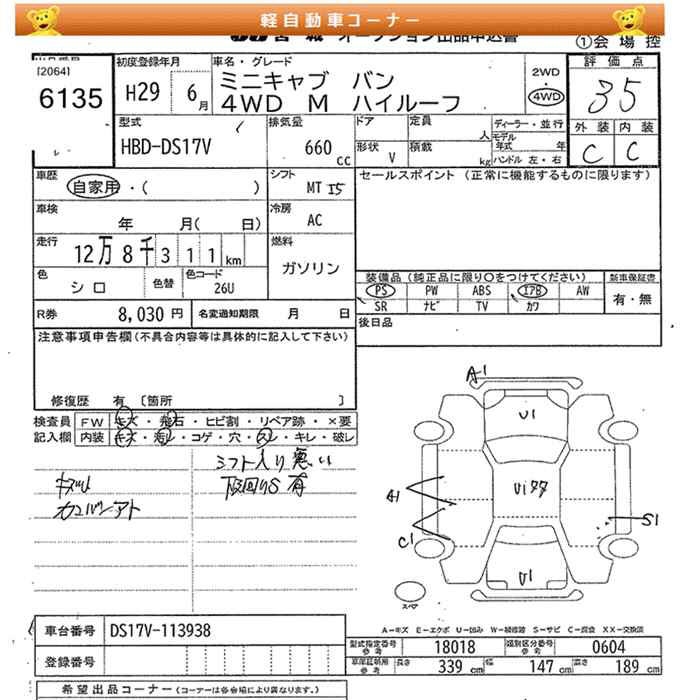 軽自動車コーナー
オークション出品申込書
①会場控
[2064]
6135
初度登録年月
H29 6月
車名・グレード
ミニキャブ バン
4WD M ハイルーフ
2WD
4WD
評価点
35
外装 内装
C C
型式
HBD-DS17V
排気量
660 cc
ドア
形状 V
定員 人
積載 kg
ディーラー・並行
モデル年式 年
ハンドル 左・右
車歴
自家用・( )
シフト
MT I5
セールスポイント (正常に機能するものに限ります)
車検
年 月( 日)
冷房
AC
走行
12万8千311km
燃料
ガソリン
色
シロ
色替
色コード
26U
装備品 (純正品に限り○をつけてください)
新車保証書
PS PW ABS エアB AW
SR ナビ TV カワ
有・無
R券
8,030円
名変通知期限 月 日
後日品
注意事項申告欄 (不具合内容等は具体的に記入して下さい)
修復歴 有 〔箇所 〕
検査員記入欄
FW キズ・飛石・ヒビ割・リペア跡・×要
内装 キズ・汚レ・コゲ・穴・スレ・キレ・破レ
シフト入り悪い
下回りS有
キズU
カバーアト
A1
U1
A1
C1
S1
U1
スペア
A-キズ E-エクボ U-凹み W-補修跡 S-サビ C-腐食 XX-交換済
車台番号
DS17V-113938
登録番号
型式指定番号 参考
18018
類別区分番号 参考
0604
車庫証明用参考
長さ 339 cm
幅 147 cm
高さ 189 cm
希望出品コーナー (コーナーは各会場により異なります。)